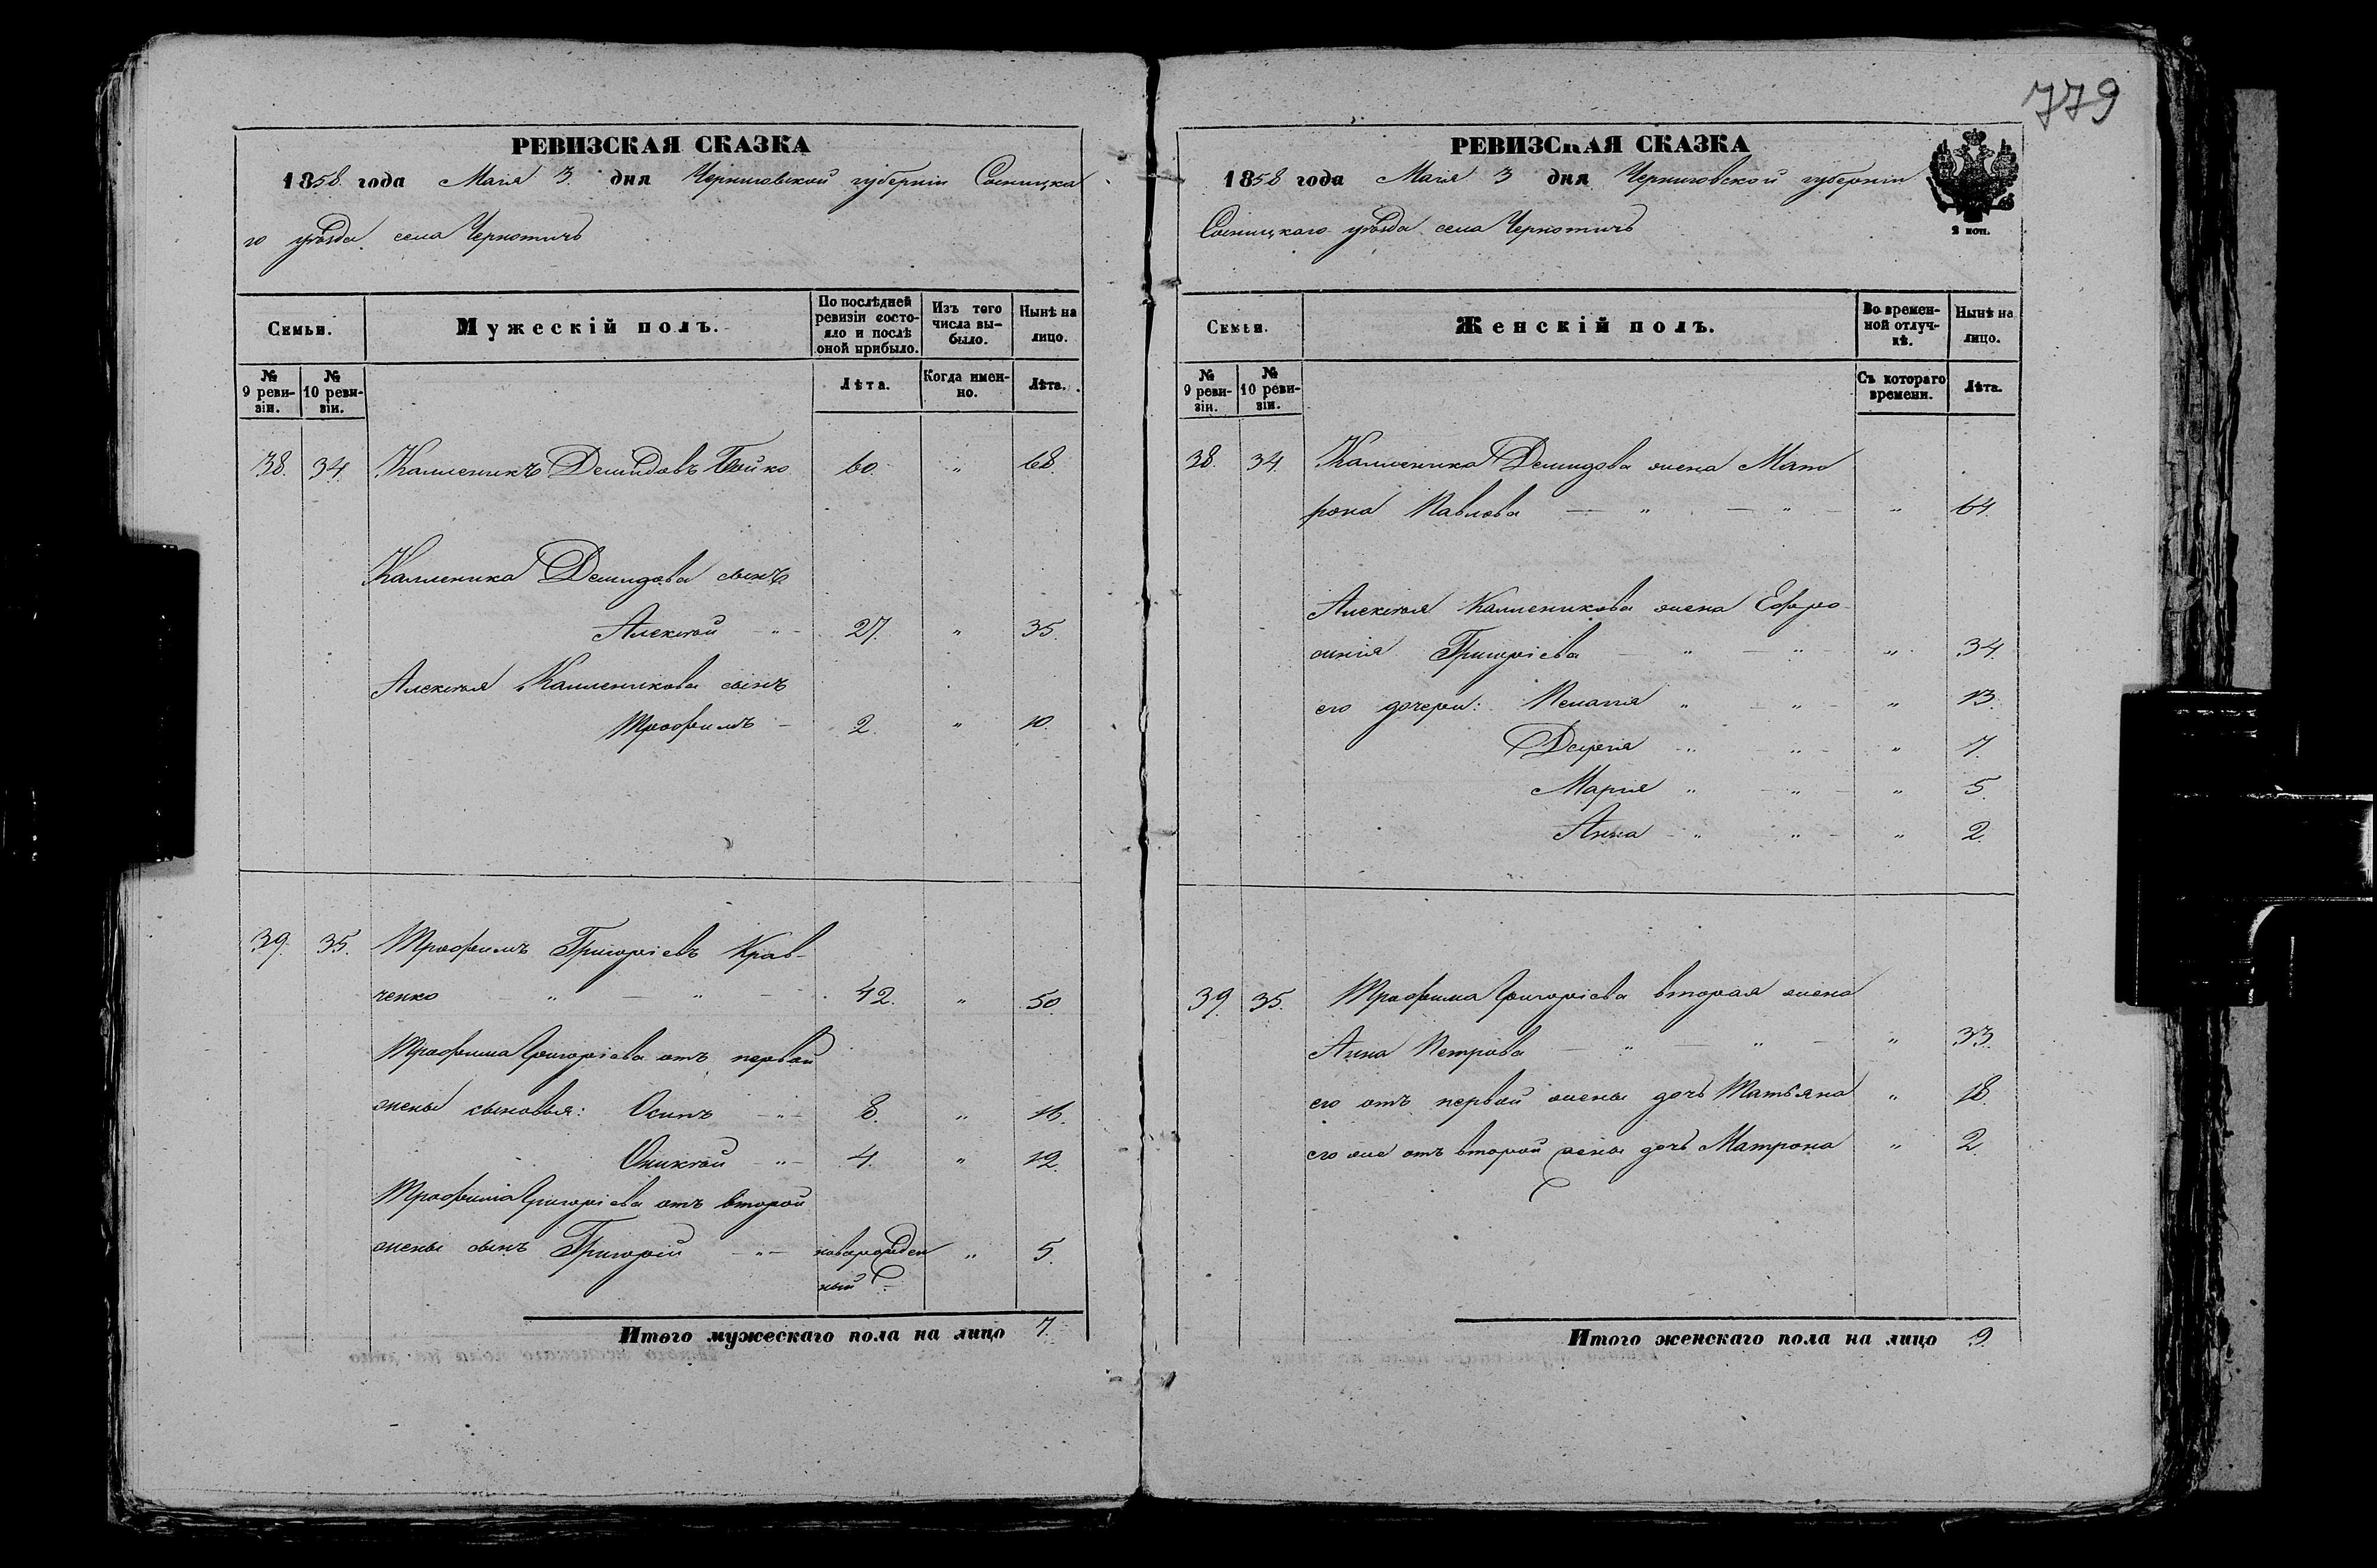 779
РЕВИЗСКАЯ СКАЗКА
1858 года Маія 3 дня Черниговской губерніи Сосницка
го уѣзда села Чернотичъ
Семьи.
Мужескій полъ.
По послѣдней ревизіи состояло и послѣ оной прибыло.
Изъ того числа выбыло.
Нынѣ на лицо.
№ 9 ревизіи.
№ 10 ревизіи.
Лѣта.
Когда именно.
Лѣта.
38. 34. Каленикъ Демидовъ Бойко 60. " 68.
Каленика Демидова сынъ
Алексѣй - " - 27. " 35.
Алексѣя Каленикова сынъ
Трофимъ - 2. " 10.
39. 35. Трофимъ Григоріевъ Крав-
ченко " — " — 42. " 50.
Трофима Григоріева отъ первой
жены сыновья: Осипъ - " - 8. " 16.
Оникѣй - " - 4. " 12.
Трофима Григоріева отъ второй
жены сынъ Григорій - " - новорожден " 5.
ный
Итого мужескаго пола на лицо 7.
РЕВИЗСКАЯ СКАЗКА
1858 года Маія 3 дня Черниговской губерніи
Сосницкаго уѣзда села Чернотичъ
2 коп.
Семьи.
Женскій полъ.
Во временной отлучкѣ.
Нынѣ на лицо.
№ 9 ревизіи.
№ 10 ревизіи.
Съ котораго времени.
Лѣта.
38. 34. Каленика Демидова жена Мат
рона Павлова — " — " — " 64.
Алексѣя Каленикова жена Ефро
синія Григоріева — " — " — " 34.
его дочери: Пелагія " - " - " 13.
Дарія - " - " - " 7.
Марія " - " - " 5.
Анна - " - " - " 2.
39. 35. Трофима Григоріева вторая жена
Анна Петрова — " — " — " 33.
его отъ первой жены дочь Татьяна " 18.
его же отъ второй жены дочь Матрона " 2.
Итого женскаго пола на лицо 9.